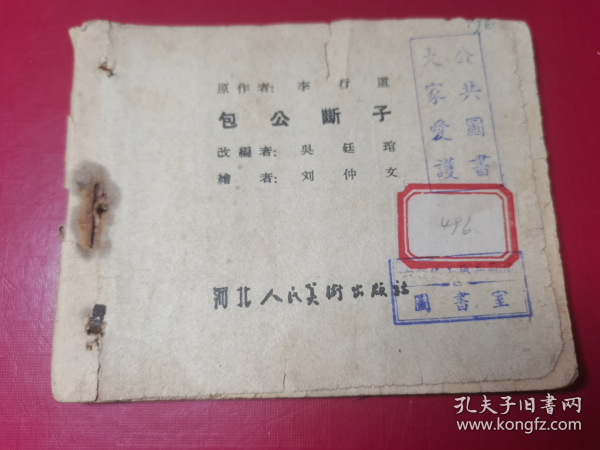 原作者: 李行道
包公斷子
改編者: 吳廷琯
繪者: 刘仲文
河北人民美術出版社
公共圖書
大家愛護
496
圖書室
孔夫子旧书网
www.kongfz.com